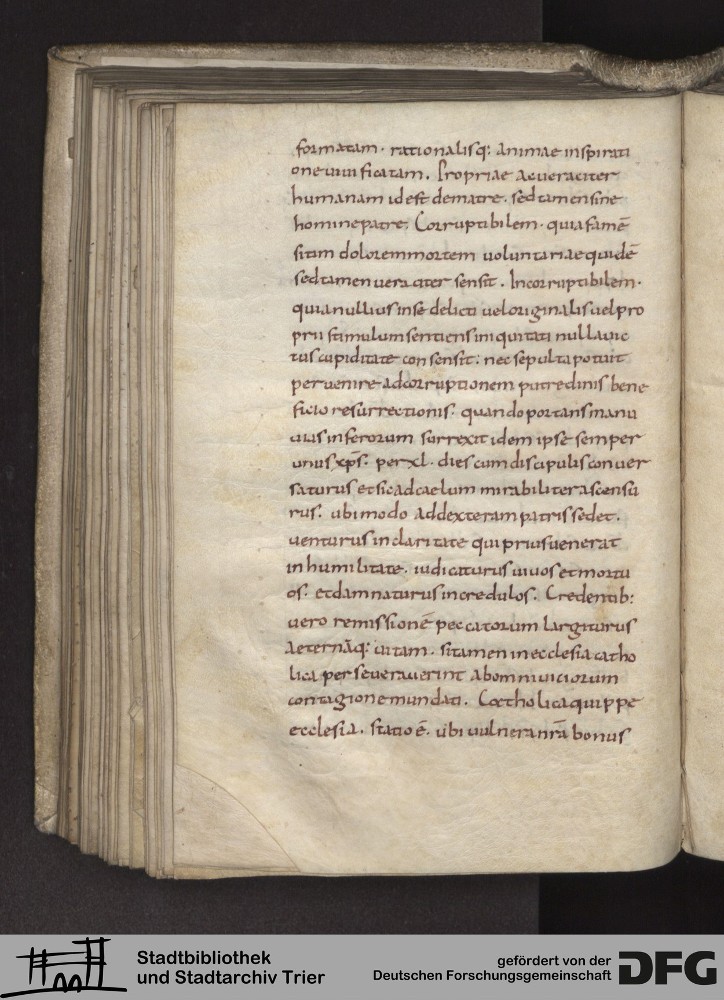 formatam. rationalisq: animae inspirati
one uiuificatam. Propriae ac ueraciter
humanam id est de matre. sed tamen sine
homine patre. Corruptibilem. quia famē
sitim dolorem mortem uoluntariae quidē
sed tamen ueraciter sensit. Incorruptibilem.
quia nullius in se delicti uel originalis uel pro
prii stimulum sentiens iniquitati nulla uic
tus cupiditate consensit: nec sepulta potuit
peruenire ad corruptionem putredinis bene
ficio resurrectionis. quando portans manu
uias inferorum surrexit idem ipse semper
unus xp̄s. per xl. dies cum discipulis conuer
saturus et sic ad caelum mirabiliter ascensu
rus. ubi modo ad dexteram patris sedet.
uenturus in claritate qui prius uenerat
in humilitate. iudicaturus uiuos et mortu
os. et damnaturus incredulos. Credentib:
uero remissionē peccatorum largiturus
aeternāq: uitam. si tamen in ecclesia catho
lica perseuerauerint ab omni uiciorum
contagione mundati. Catholica quippe
ecclesia. statio ē. ubi uulnera nr̄a bonus
Stadtbibliothek
und Stadtarchiv Trier
gefördert von der
Deutschen Forschungsgemeinschaft
DFG